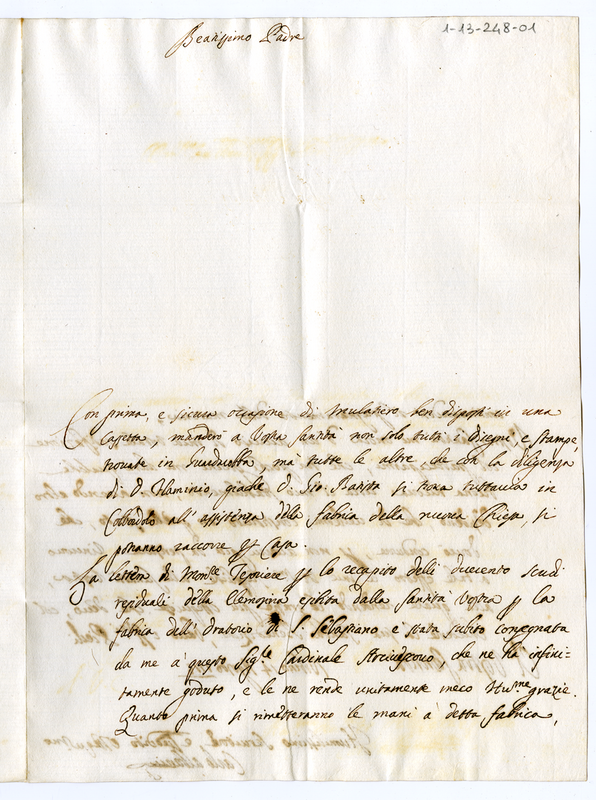 1-13-248-01
Beatissimo Padre
Con prima, e sicura occasione di mulatiero ben disposti in una
Cassetta, manderò a Vostra Santità non solo tutti i disegni, e stampe,
trovate in Guardarobba, mà tutte le altre, che con la diligenza
di D. Flaminio, giachè D. Gio: Batista si trova tuttavia in
all'assistenza della fabrica della nuova Chiesa, si
potranno raccorre Casa.
La lettera di Monsre Tesoriere p lo recapito delli duecento scudi
residuali della Elemosina esibita dalla Santità Vostra p la
fabrica dell'Oratorio di S. Sebastiano è stata subito consegnata
da me a questo Sigre Cardinale Arcivescovo, che ne hà infini-
tamente goduto, e le ne rende unitamente meco Hume grazie.
Quanto prima si rimetteranno le mani à detta fabrica,